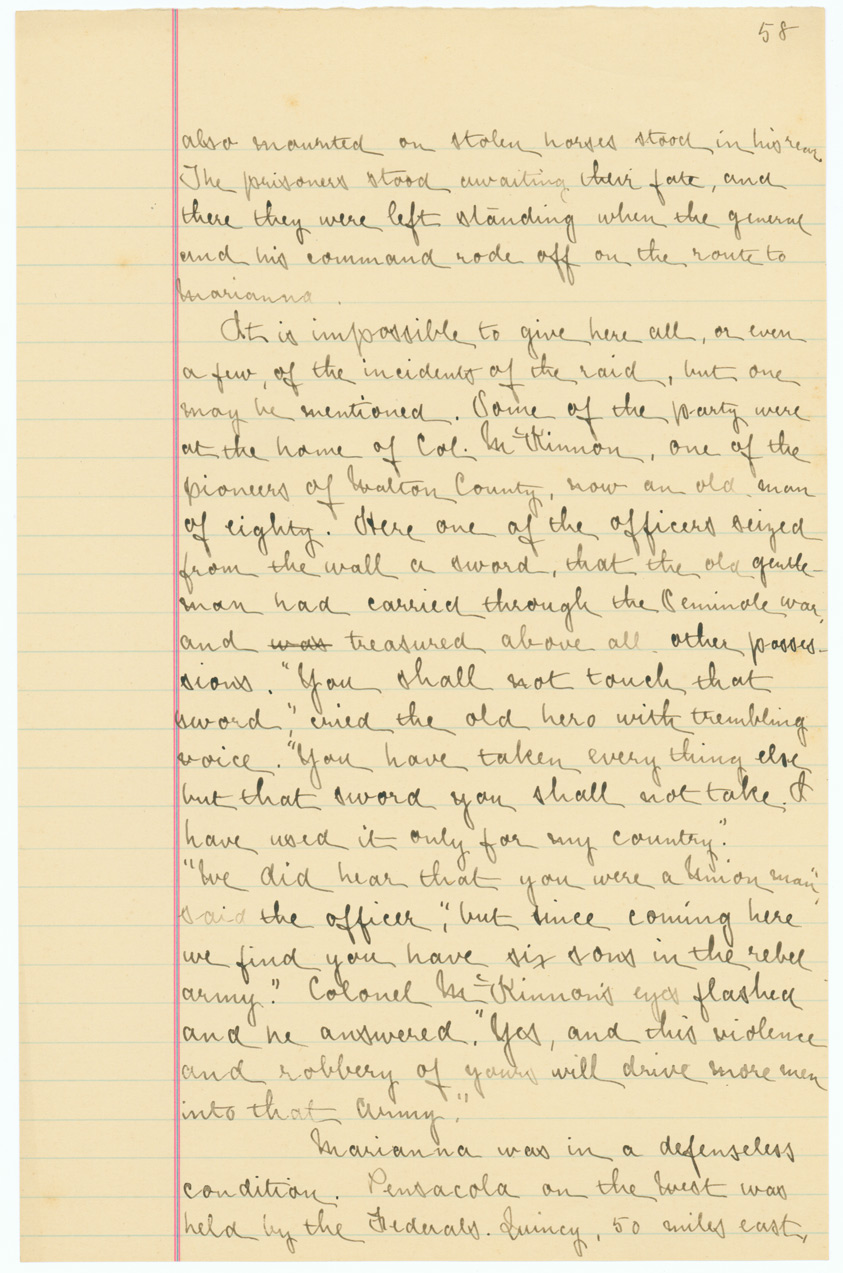 58
also mounted on stolen horses stood in his rear.
The prisoners stood awaiting their fate, and
there they were left standing when the general
and his command rode off on the route to
Marianna.
It is impossible to give here all, or even
a few, of the incidents of the raid, but one
may be mentioned. Some of the party were
at the home of Col. McKinnon, one of the
pioneers of Walton County, now an old man
of eighty. Here one of the officers seized
from the wall a sword, that the old gentle-
man had carried through the Seminole war,
and was treasured above all other posses-
sions. "You shall not touch that
sword", cried the old hero with trembling
voice. "You have taken every thing else
but that sword you shall not take. I
have used it only for my country".
"We did hear that you were a Union man",
said the officer, "but since coming here
we find you have six sons in the rebel
army." Colonel McKinnon's eyes flashed
and he answered. "Yes, and this violence
and robbery of yours will drive more men
into that army."
Marianna was in a defenseless
condition. Pensacola on the West was
held by the Federals. Quincy, 50 miles east,